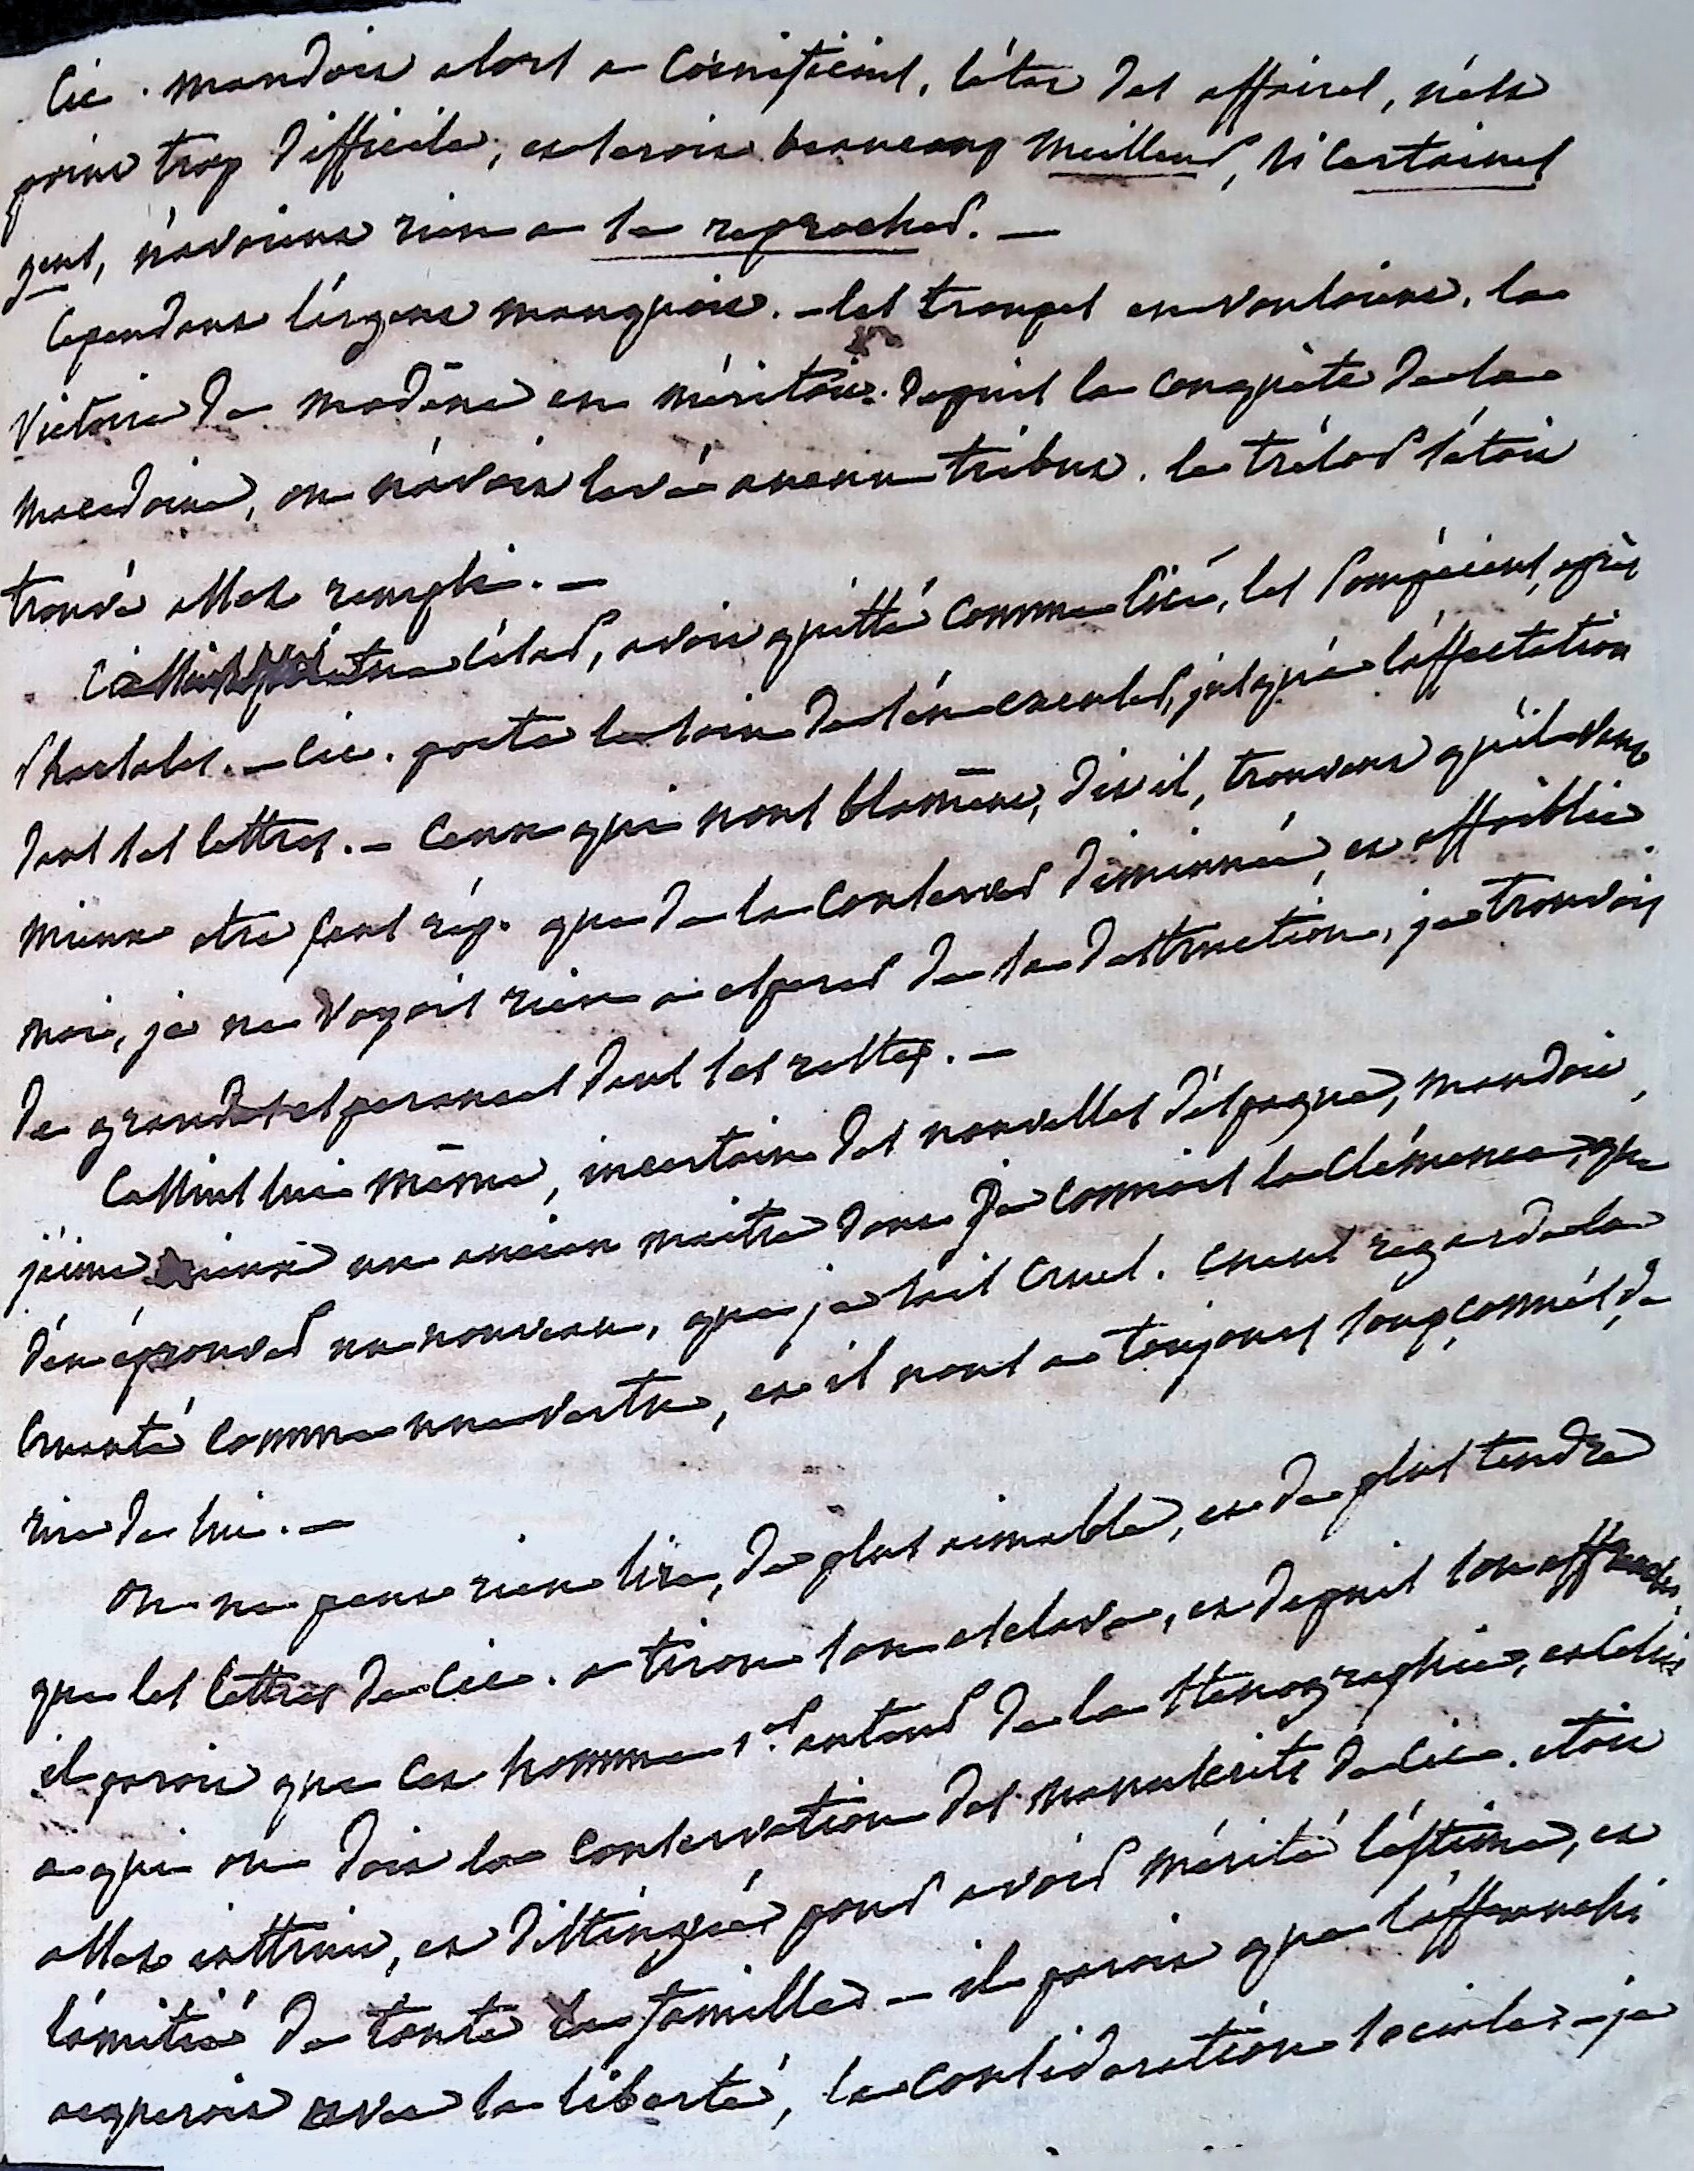 Cic. mandoit alors a Cornificius, l'état des affaires, n'est
point trop difficile, et seroit beaucoup meilleur, si certaines
gens, n'avoient rien a se reprocher. —
Cependant l'argent manquoit. — les troupes en vouloient. la
victoire de modène en méritoit. depuis la conquête de la
macedoine, on n'avoit levé aucun tribut. le trésor s'étoit
trouvé assez rempli. —
César, avoit quitté comme Cic., les Pompéiens, après
Pharsales. — Cic. porte le soin de s'en excuser, jusqu'à l'affectation
dans ses lettres. — Ceux qui nous blâment, dit-il, trouvent qu'il vaut
mieux être sans rép. que de la conserver diminuée, et affoiblie
moi, je ne voyois rien a espérer de sa destruction, je trouvois
de grandes esperances dans ses restes. —
Cassius lui même, incertain des nouvelles d'espagne, mandoit,
j'aime mieux un ancien maitre dont je connois la clémence, que
d'en éprouver un nouveau, que je sais cruel. Cneus regarde la
cruauté comme une vertu, et il nous a toujours soupçonnés, de
rire de lui. —
On ne peut rien lire, de plus aimable, et de plus tendre
que les lettres de Cic. a tiron son esclave, et depuis son affranchi.
il paroit que cet homme 1.er auteur de la stenographie, et celui
a qui on doit la conservation des manuscrits de Cic. etoit
assez instruit, et distingué pour avoir mérité l'estime, et
l'amitié de toute la famille — il paroit que l'affranchi
acqueroit avec la liberté, la considération sociale — je